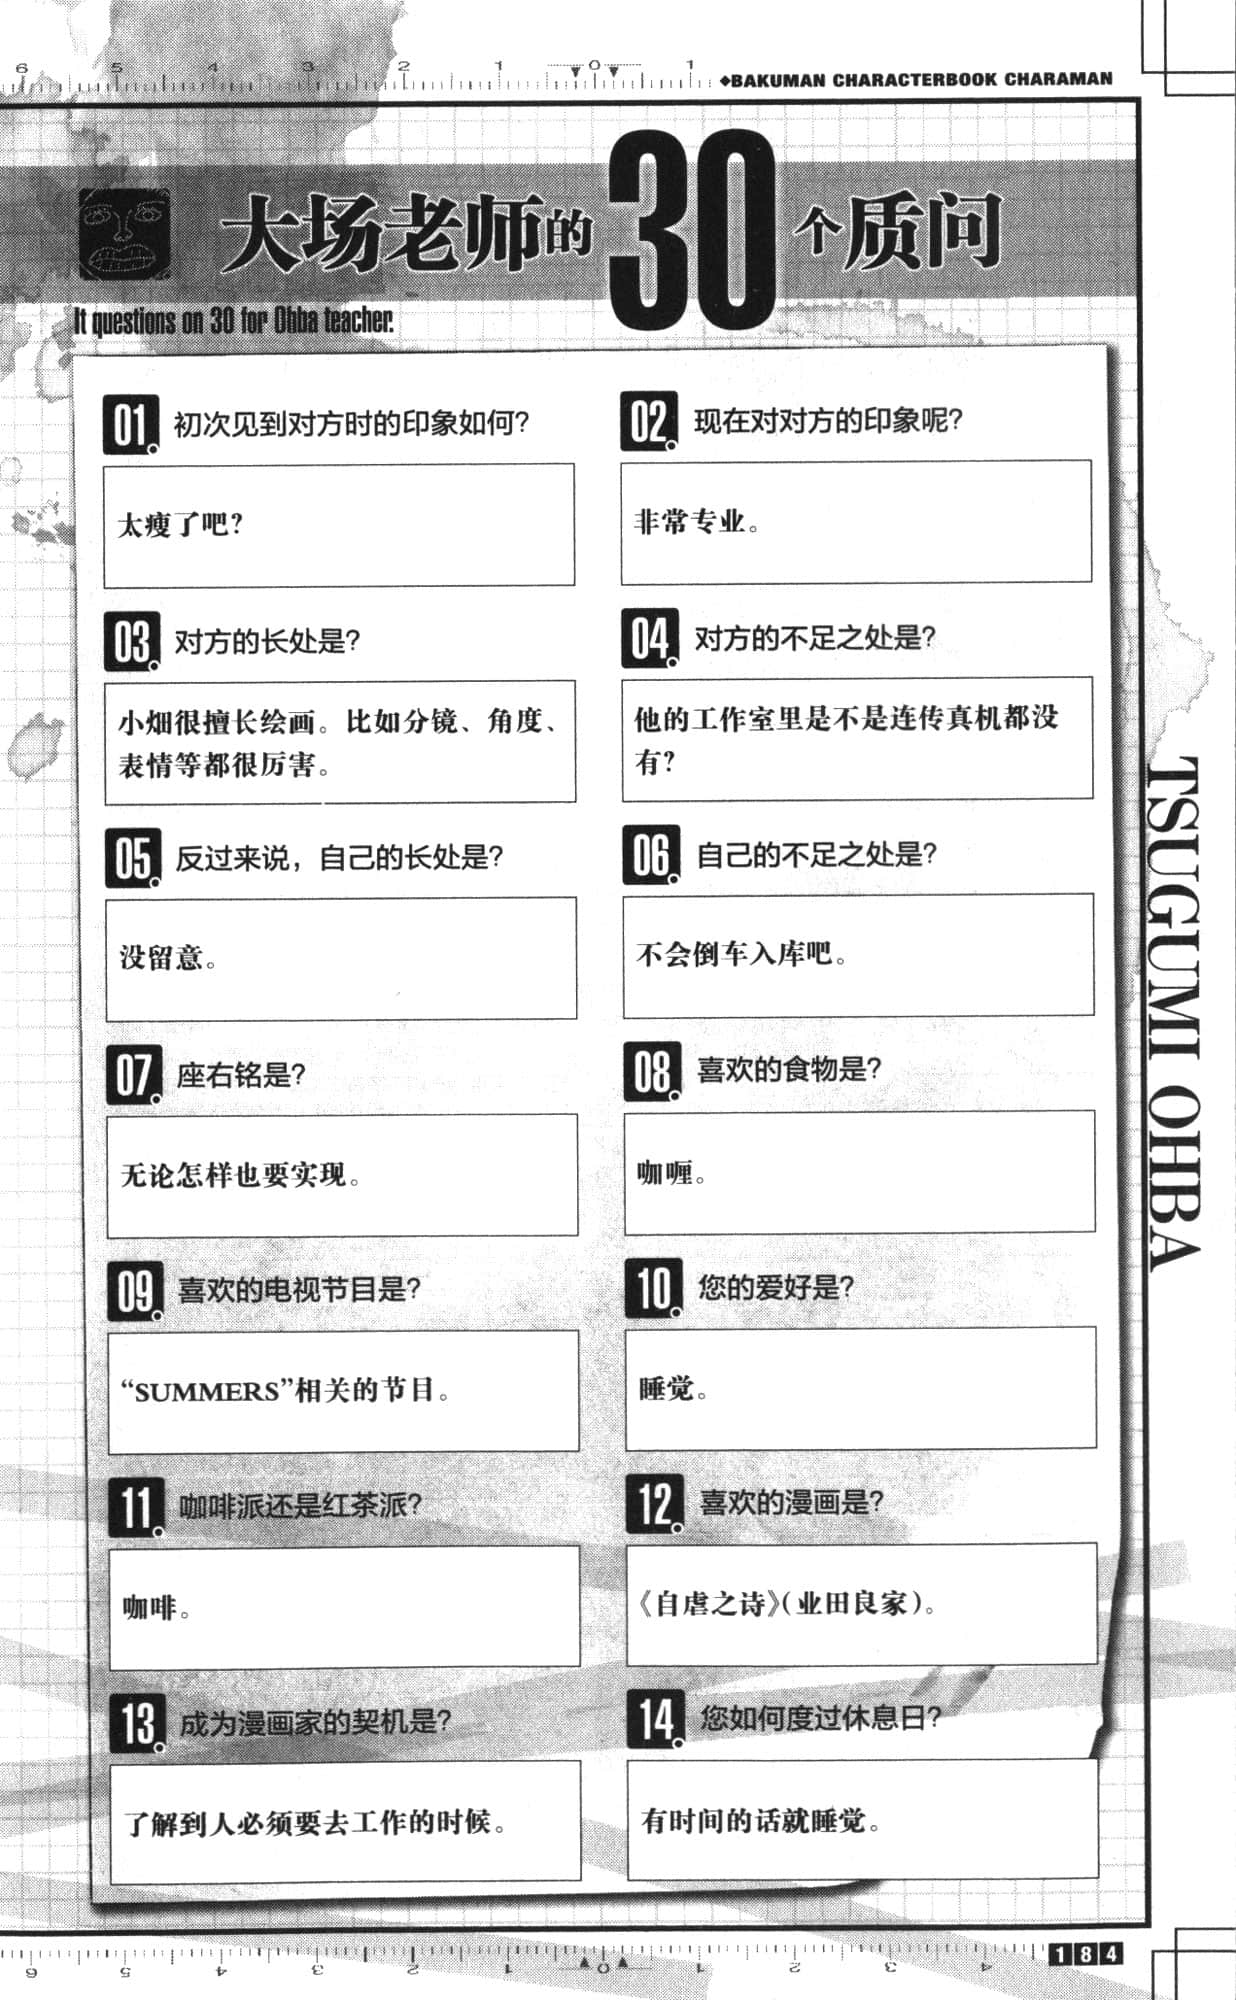 6 5 4 3 2 1 0 1
◆BAKUMAN CHARACTERBOOK CHARAMAN
大场老师的30个质问
It questions on 30 for Ohba teacher.
01 初次见到对方时的印象如何?
太瘦了吧?
02 现在对对方的印象呢?
非常专业。
03 对方的长处是?
小畑很擅长绘画。比如分镜、角度、
表情等都很厉害。
04 对方的不足之处是?
他的工作室里是不是连传真机都没
有?
05 反过来说，自己的长处是?
没留意。
06 自己的不足之处是?
不会倒车入库吧。
07 座右铭是?
无论怎样也要实现。
08 喜欢的食物是?
咖喱。
09 喜欢的电视节目是?
“SUMMERS”相关的节目。
10 您的爱好是?
睡觉。
11 咖啡派还是红茶派?
咖啡。
12 喜欢的漫画是?
《自虐之诗》（业田良家）。
13 成为漫画家的契机是?
了解到人必须要去工作的时候。
14 您如何度过休息日?
有时间的话就睡觉。
TSUGUMI OHBA
184
6 5 4 3 2 1 0 1 2 3 4